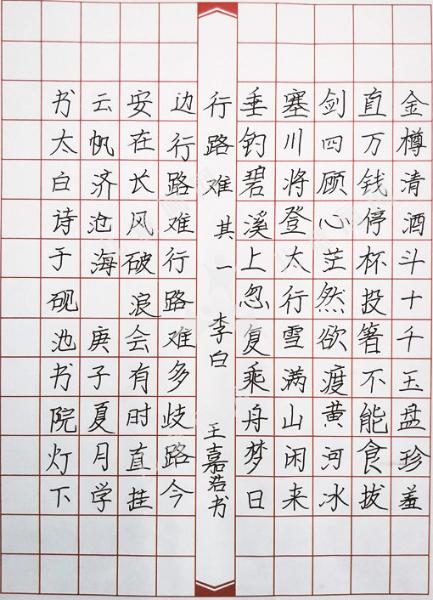 金樽清酒斗十千玉盘珍羞
直万钱停杯投箸不能食拔
剑四顾心茫然欲渡黄河冰
塞川将登太行雪满山闲来
垂钓碧溪上忽复乘舟梦日
行路难 其一 李白 王嘉浩书
边行路难行路难多歧路今
安在长风破浪会有时直挂
云帆济沧海 庚子夏月学
书太白诗于砚池书院灯下